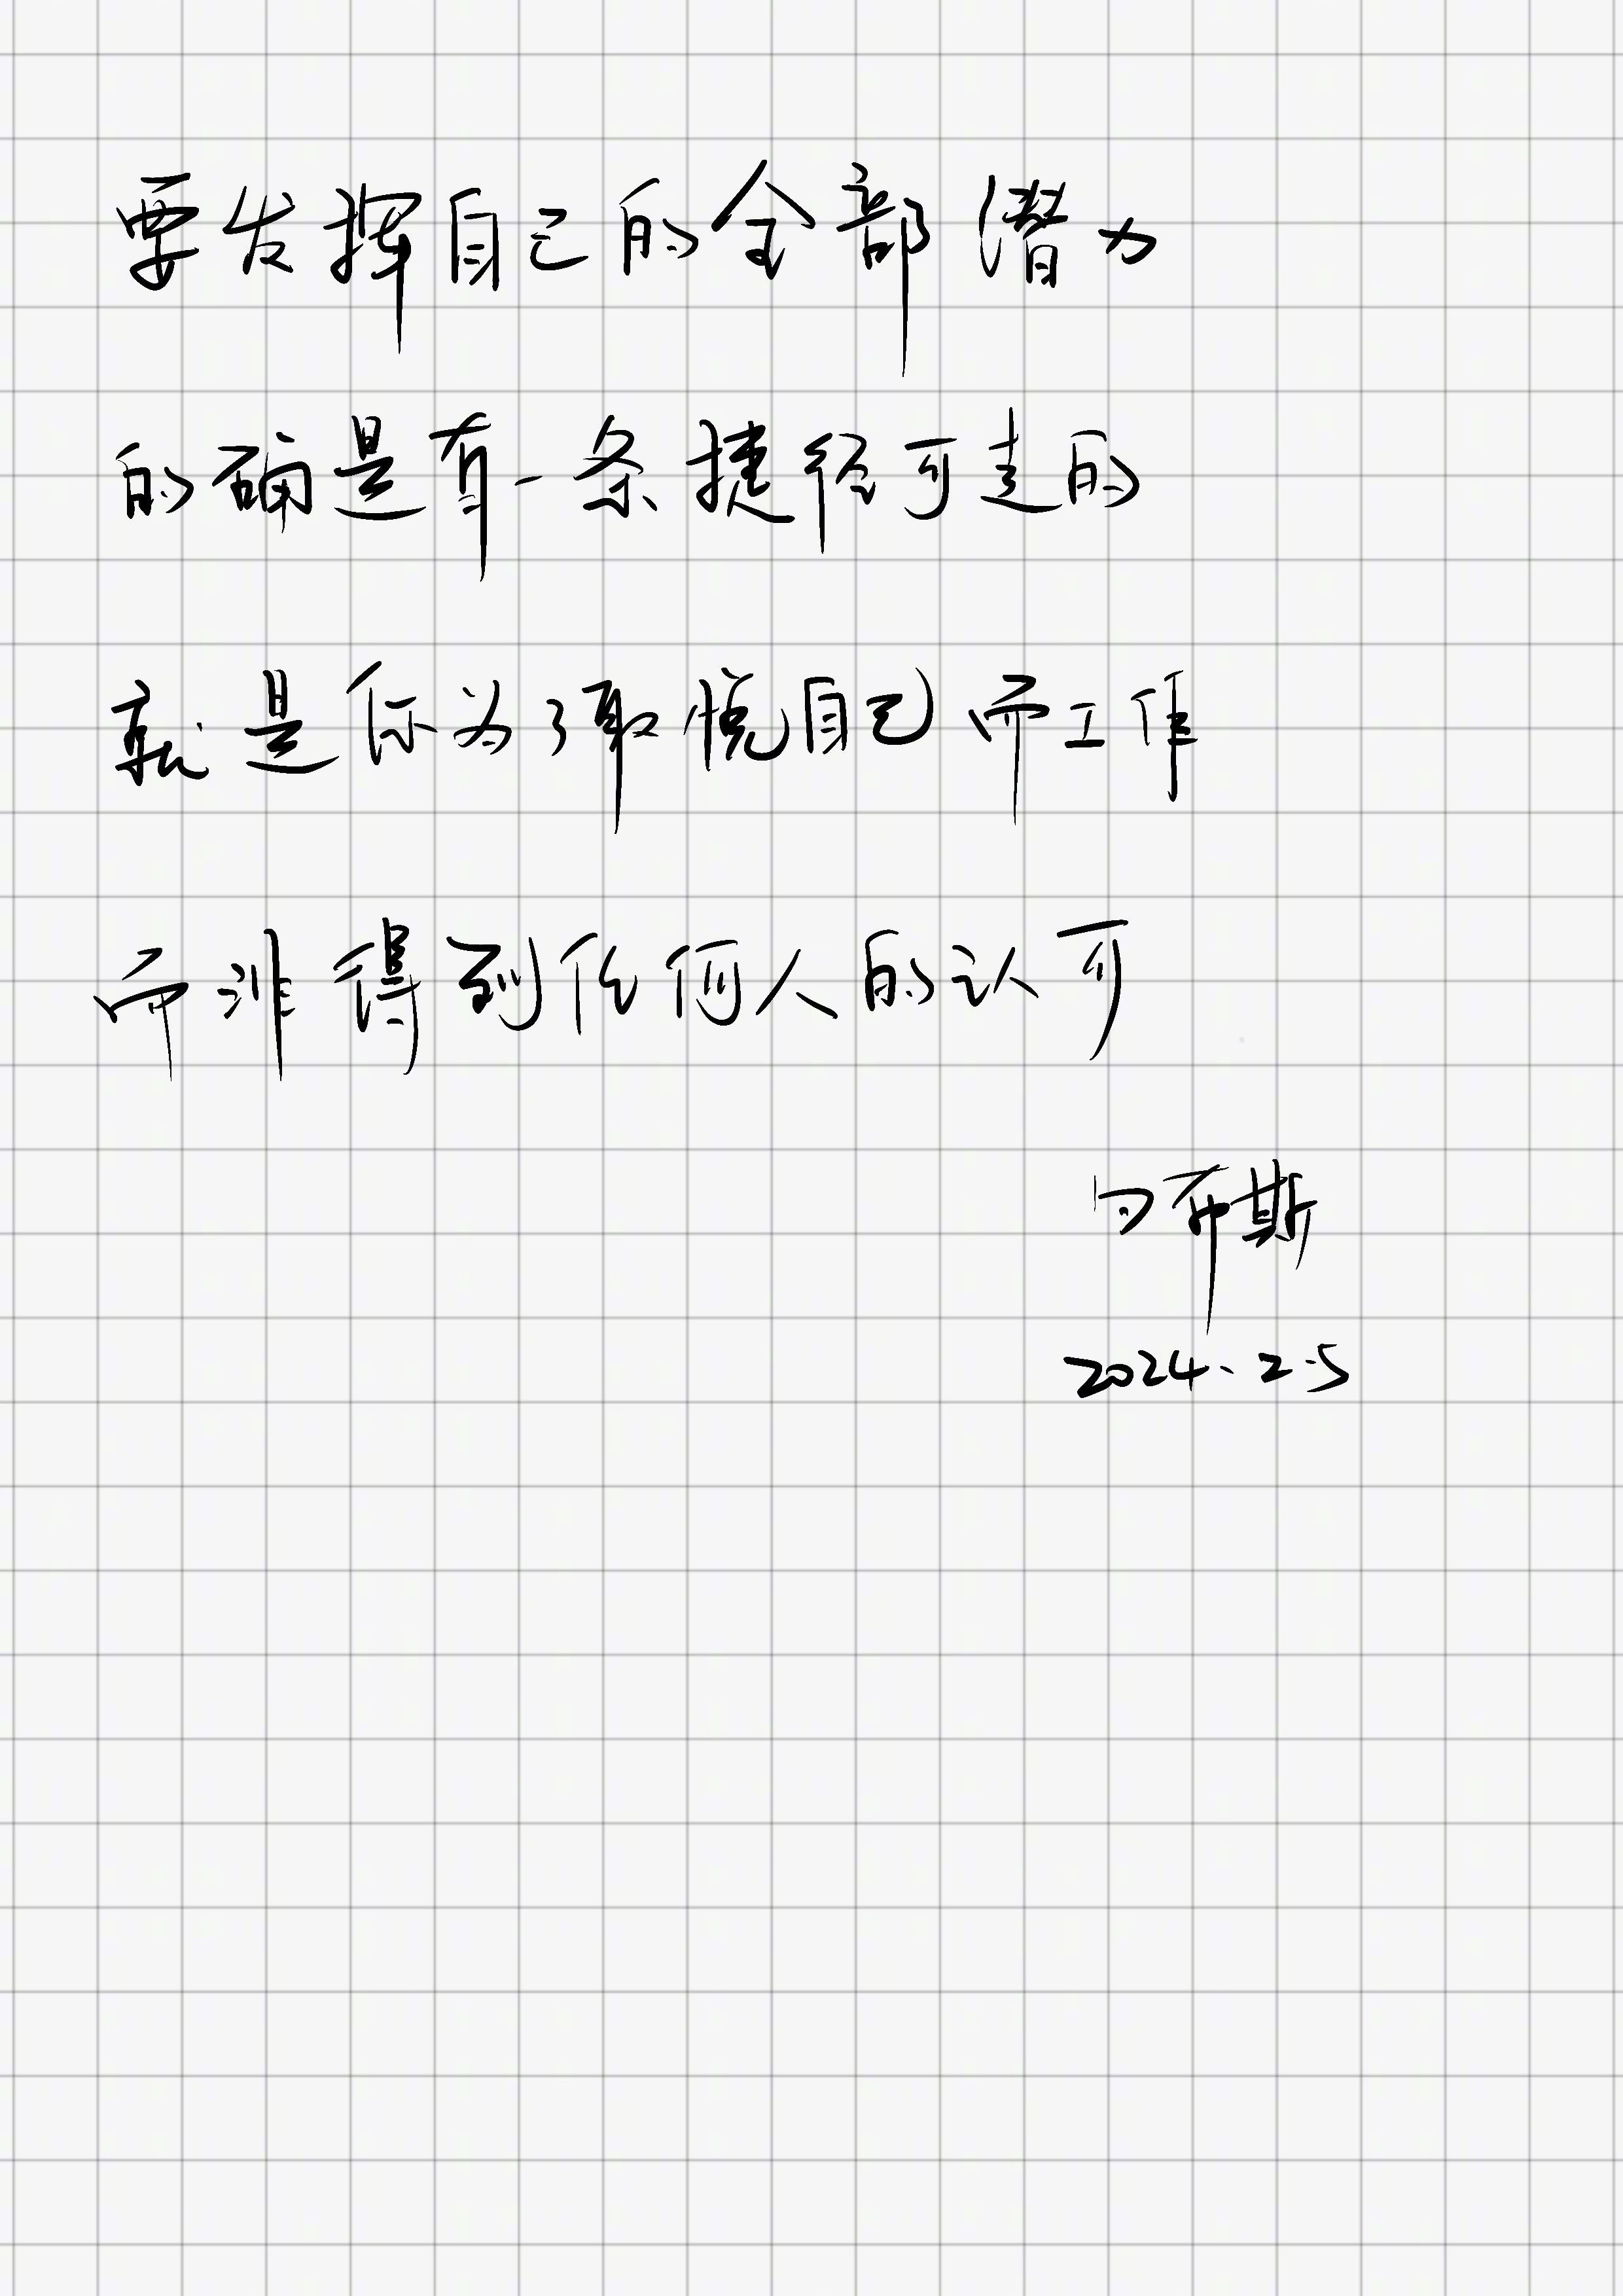 要发挥自己的全部潜力
的确是有一条捷径可走的
就是你为了取悦自己而工作
而非得到任何人的认可
乔斯
2024.2.5